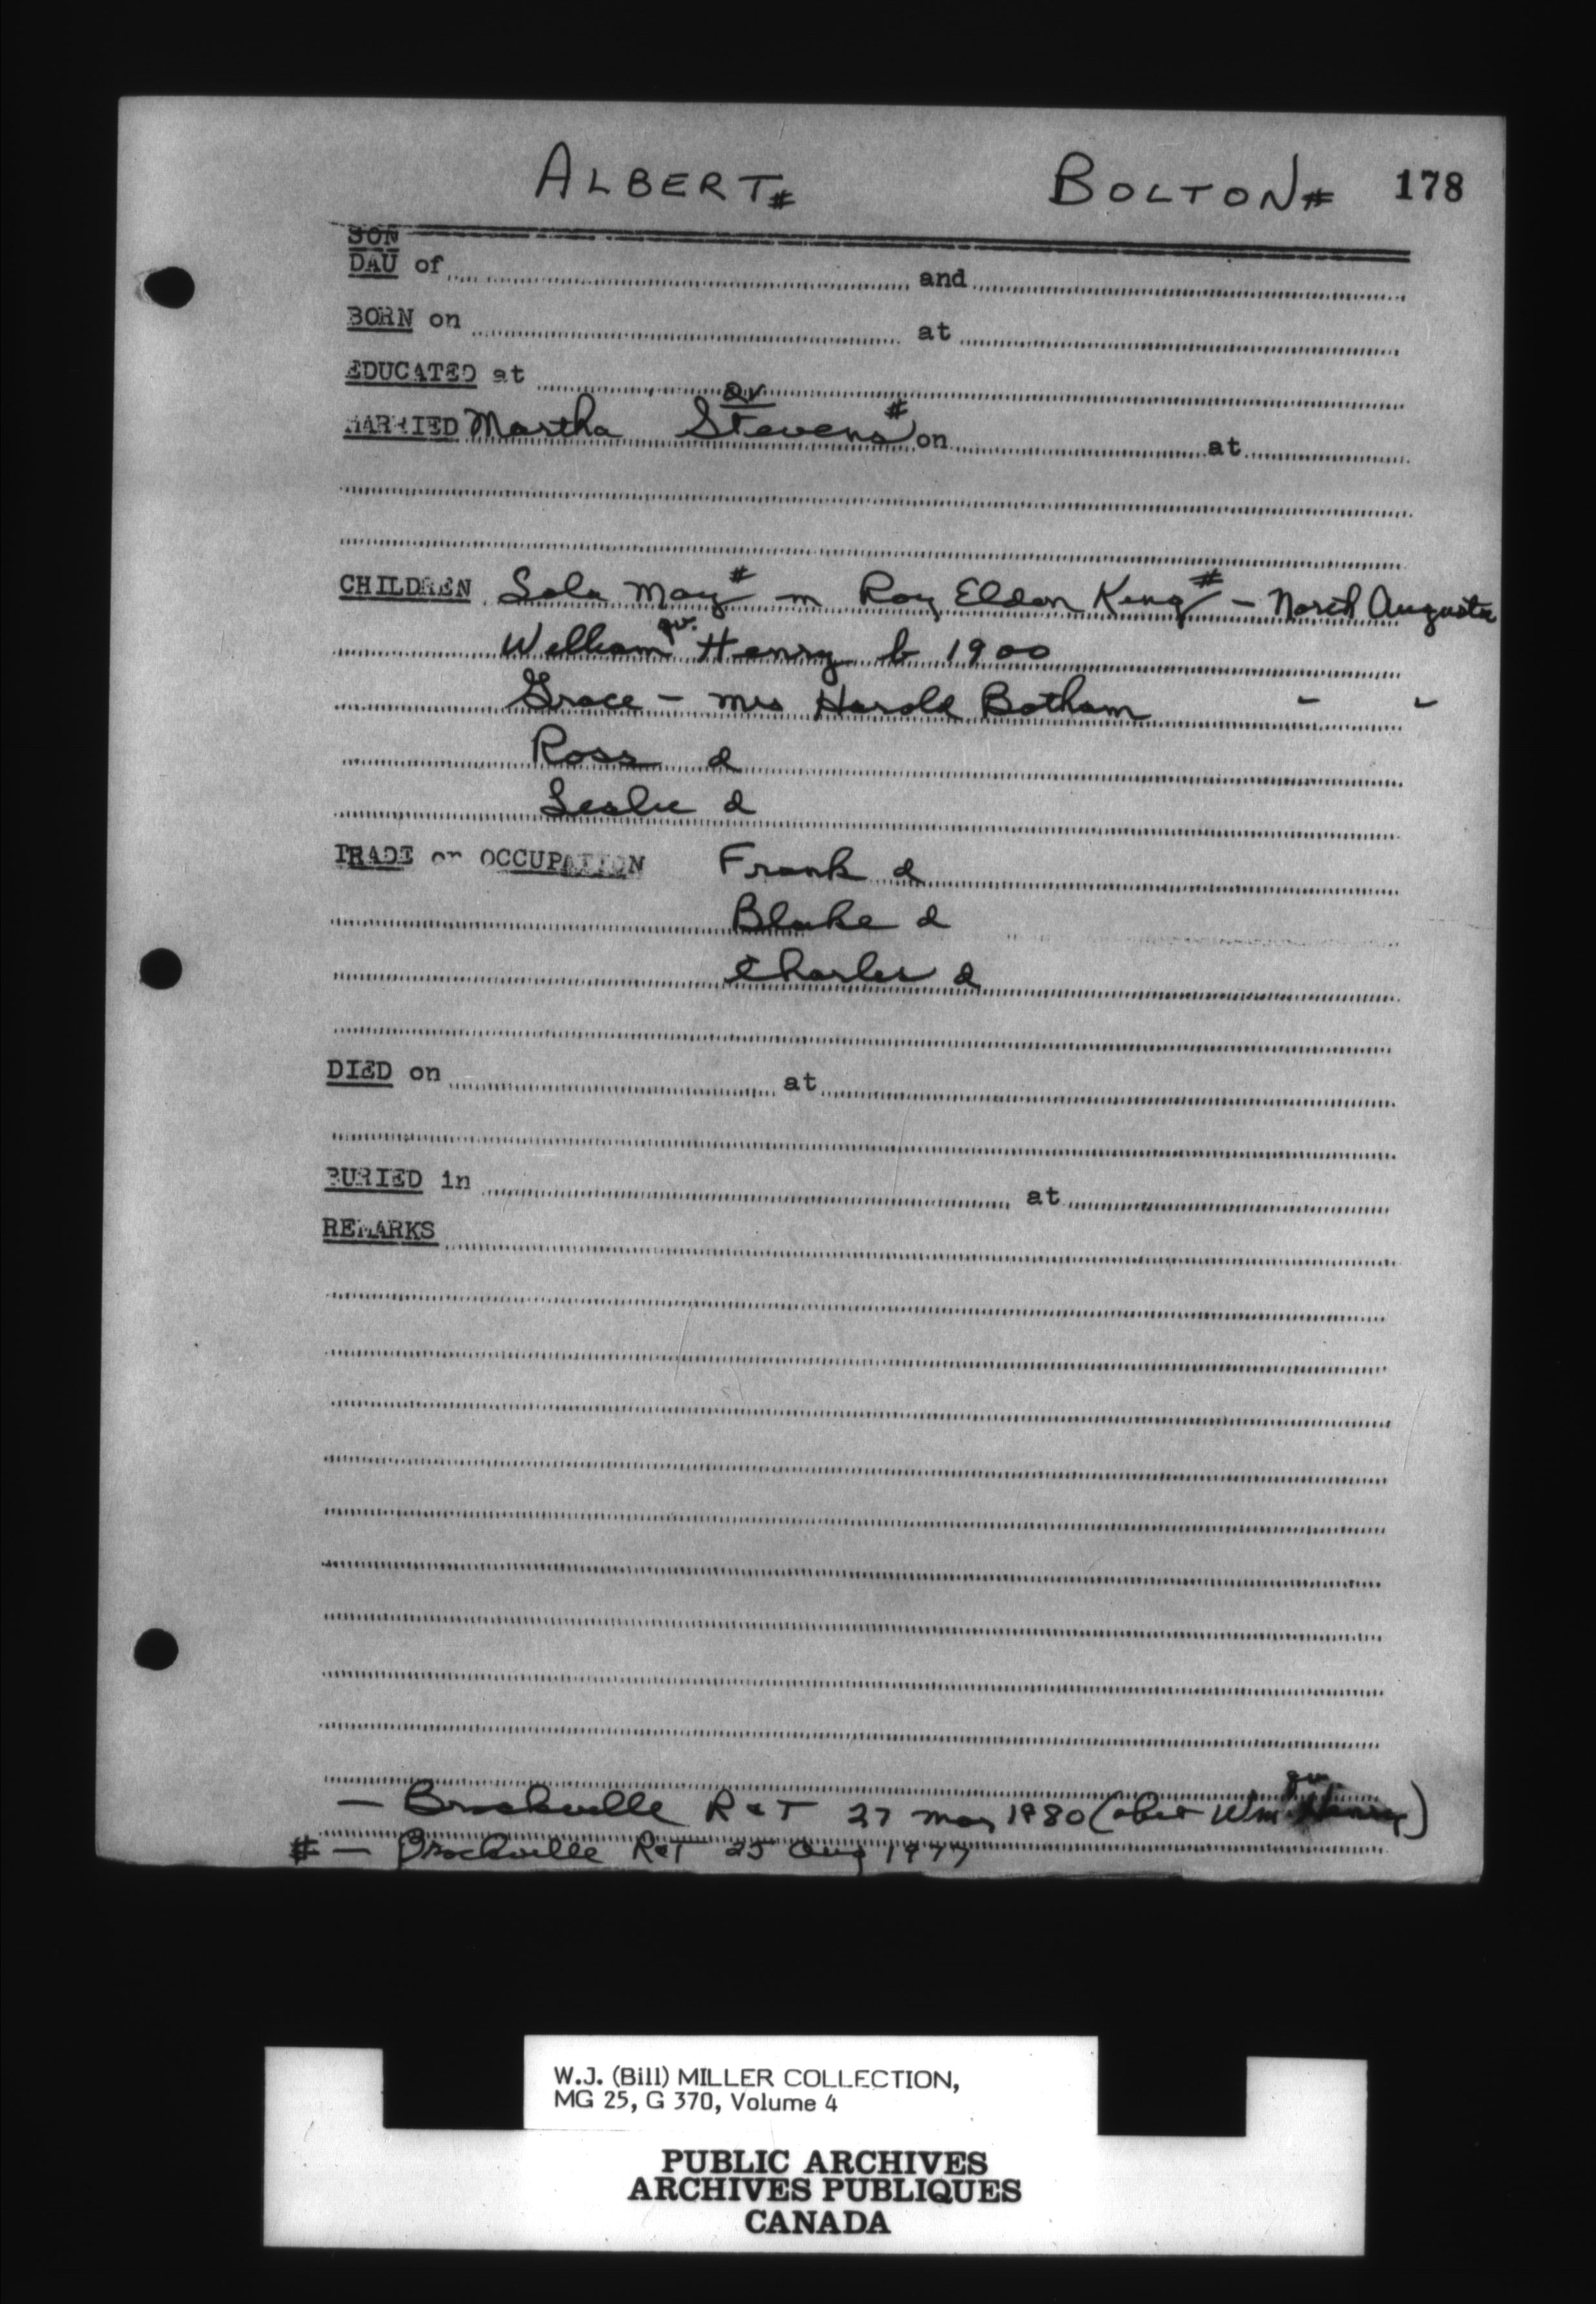 ALBERT# BOLTON# 178
SON
DAU of and
BORN on at
EDUCATED at
qv
MARRIED Martha Stevens# on at
CHILDREN Lola May# m Roy Eldon King# - North Augusta
William qv. Henry b 1900
Grace - Mrs Harold Botham " "
Ross d
Leslie d
TRADE or OCCUPATION Frank d
Blake d
Charles d
DIED on at
BURIED in at
REMARKS
- Brockville R & T 27 May 1980 (obit Wm qv Henry)
# - Brockville R&T 25 Aug 1977
W.J. (Bill) MILLER COLLECTION,
MG 25, G 370, Volume 4
PUBLIC ARCHIVES
ARCHIVES PUBLIQUES
CANADA